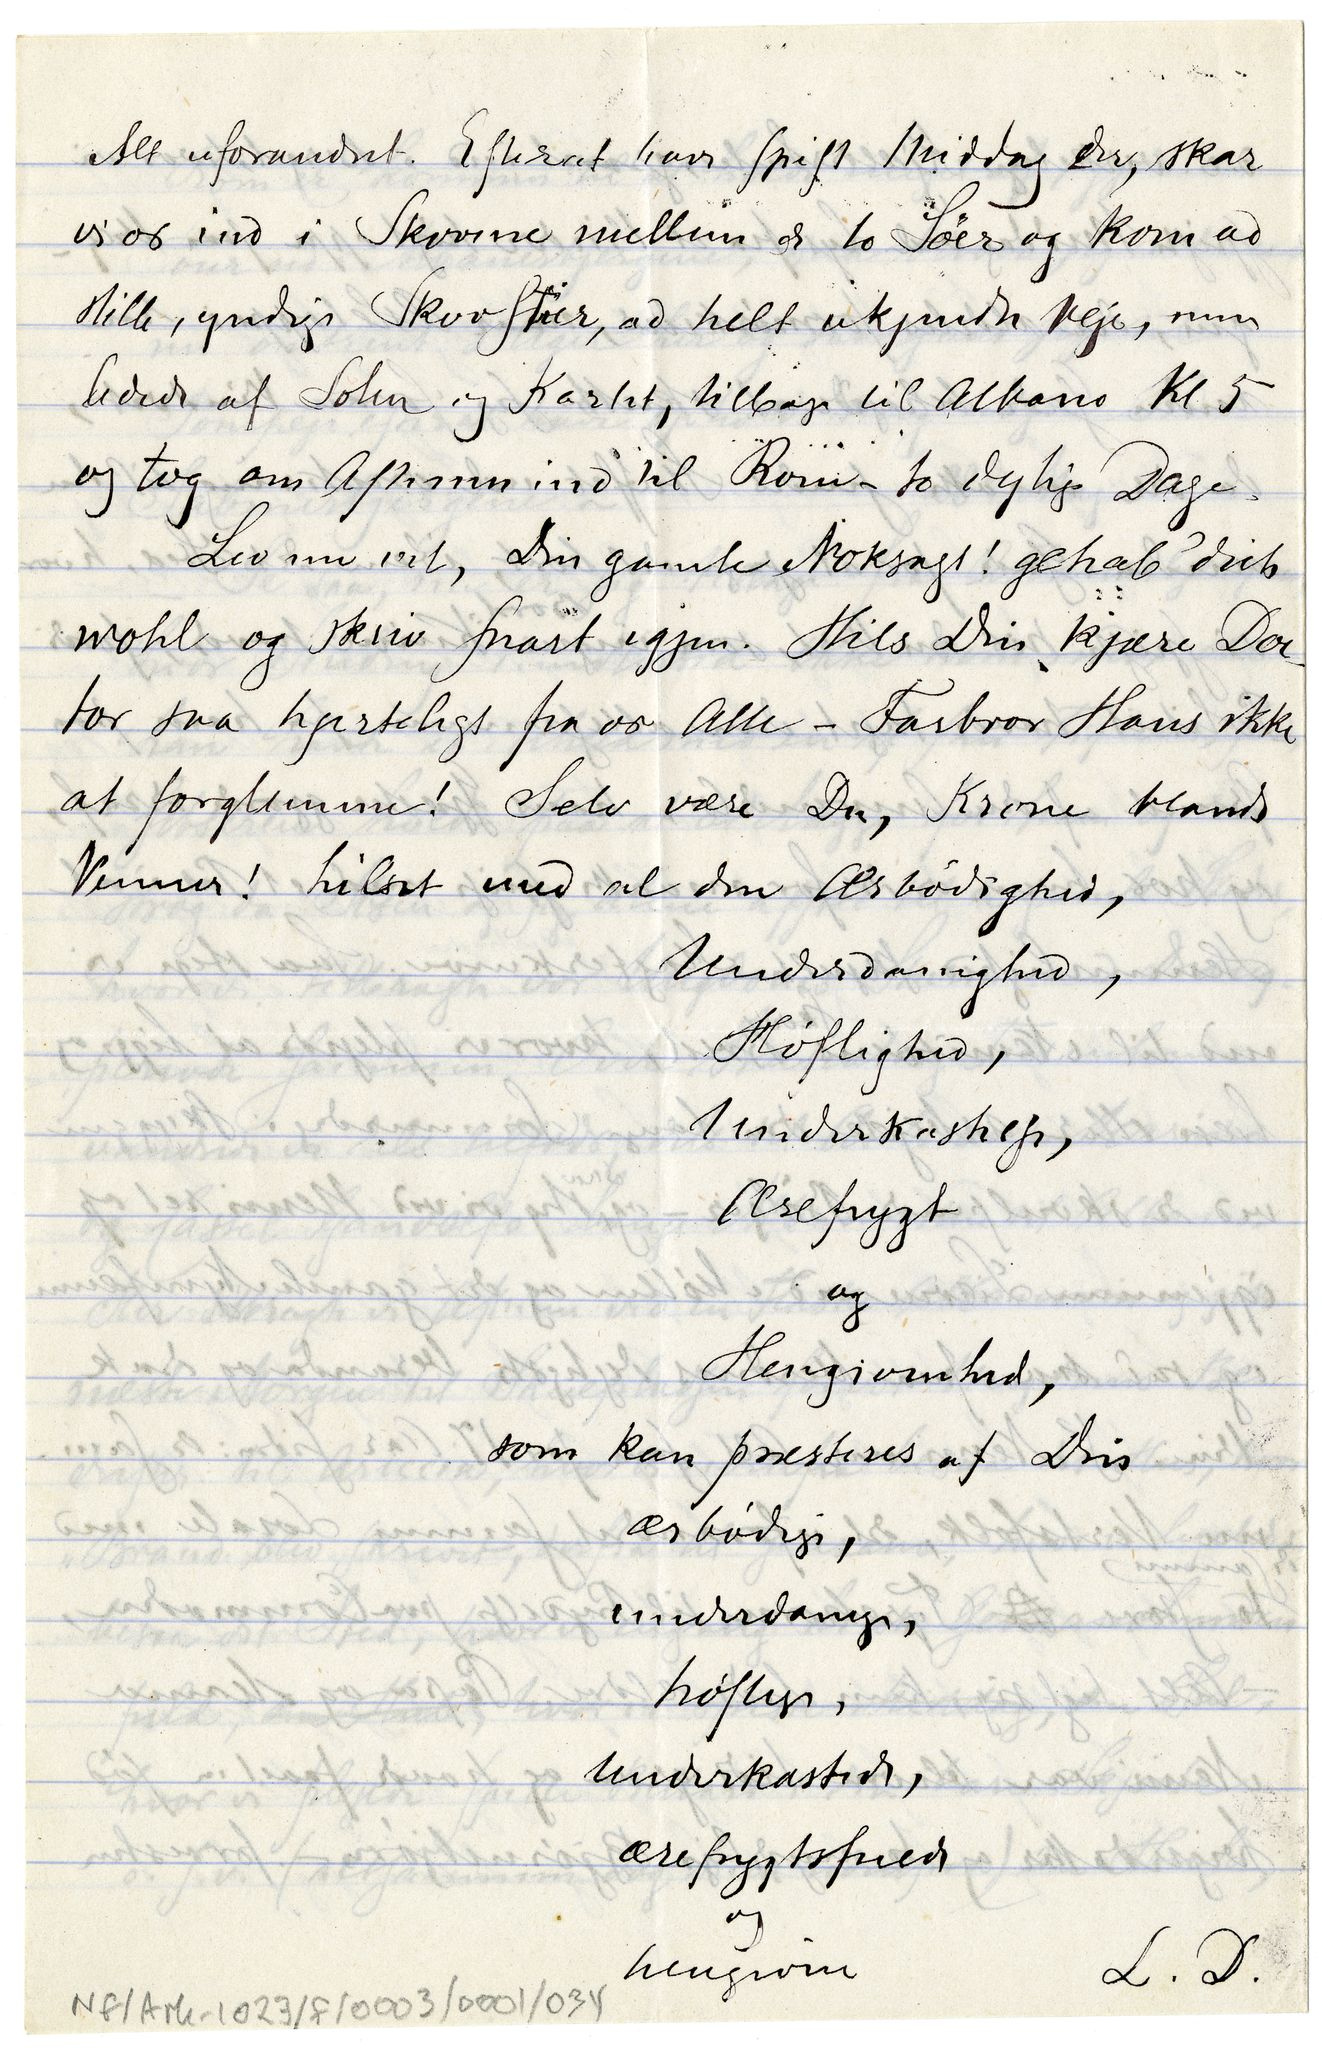 Alt uforandret. Efterat have spist Middag der, skar
vi os ind i Skovene mellem de to Söer og kom ad
stille, yndige Skovstier, ad helt ukjendte Veje, kun
ledede af Solen og Kartet, tilbage til Albano Kl 5
og tog om Aftenen ind til Rom – to dejlige Dage.
Lev nu vel, Din gamle Noksagt! gehab' dich
wohl og skriv snart igjen. Hils Din kjære Doc-
tor saa hjerteligt fra os Alle – Farbror Hans ikke
at forglemme! Selv være Du, Krone blandt
Venner! hilset med al den Ærbödighed,
Underdanighed,
Höflighed,
Underkastelse,
Ærefrygt
og
Hengivenhed,
som kan præsteres af Din
ærbödige,
underdanige,
höflige,
underkastede,
ærefrygtsfulde
og
hengivne
L. D.
NF/Ark-1023/F/0003/0001/034